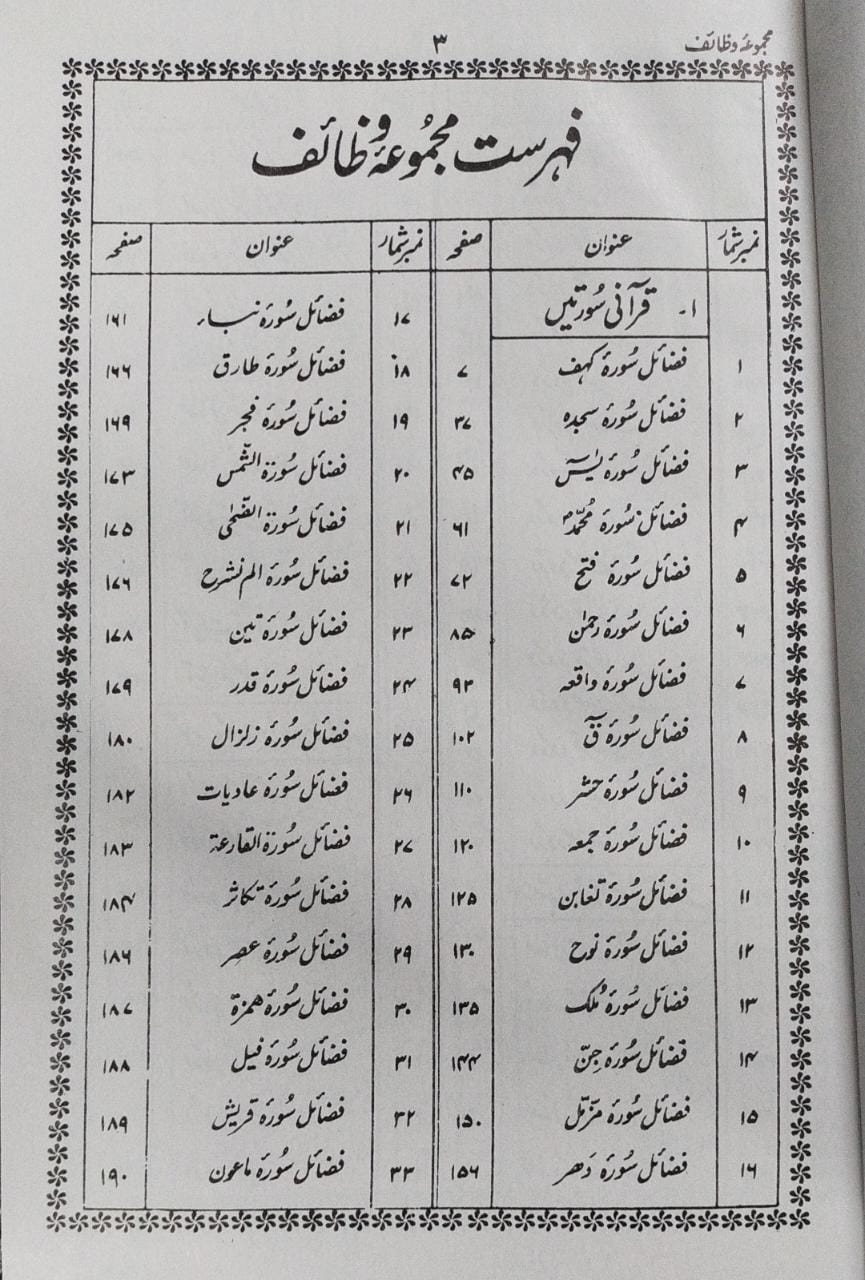 مجموعۂ وظائف
۳
فہرست مجموعۂ وظائف
نمبر شمار عنوان صفحہ نمبر شمار عنوان صفحہ
۱۔ قرآنی سُورتیں ۱۷ فضائل سُورۂ نباء ۱۶۱
۱ فضائل سُورۂ کہف ۷ ۱۸ فضائل سُورۂ طارق ۱۶۶
۲ فضائل سُورۂ سجدہ ۳۷ ۱۹ فضائل سُورۂ فجر ۱۶۹
۳ فضائل سُورۂ یٰسٓ ۴۵ ۲۰ فضائل سُورۃ الشّمس ۱۷۳
۴ فضائل سُورۂ مُحمّدؐ ۶۱ ۲۱ فضائل سُورۃ الضّحٰی ۱۷۵
۵ فضائل سُورۂ فتح ۷۲ ۲۲ فضائل سُورۂ الم نشرح ۱۷۶
۶ فضائل سُورۂ رحمٰن ۸۵ ۲۳ فضائل سُورۂ تین ۱۷۸
۷ فضائل سُورۂ واقعہ ۹۳ ۲۴ فضائل سُورۂ قدر ۱۷۹
۸ فضائل سُورۂ قٓ ۱۰۲ ۲۵ فضائل سُورۂ زلزال ۱۸۰
۹ فضائل سُورۂ حشر ۱۱۰ ۲۶ فضائل سُورۂ عادیات ۱۸۲
۱۰ فضائل سُورۂ جمعہ ۱۲۰ ۲۷ فضائل سُورۃ القارعۃ ۱۸۳
۱۱ فضائل سُورۂ تغابن ۱۲۵ ۲۸ فضائل سُورۂ تکاثر ۱۸۴
۱۲ فضائل سُورۂ نوح ۱۳۰ ۲۹ فضائل سُورۂ عصر ۱۸۶
۱۳ فضائل سُورۂ مُلک ۱۳۵ ۳۰ فضائل سُورۂ ھمزۃ ۱۸۷
۱۴ فضائل سُورۂ جِنّ ۱۴۴ ۳۱ فضائل سُورۂ فیل ۱۸۸
۱۵ فضائل سُورۂ مزّمّل ۱۵۰ ۳۲ فضائل سُورۂ قریش ۱۸۹
۱۶ فضائل سُورۂ دَھر ۱۵۶ ۳۳ فضائل سُورۂ ماعون ۱۹۰